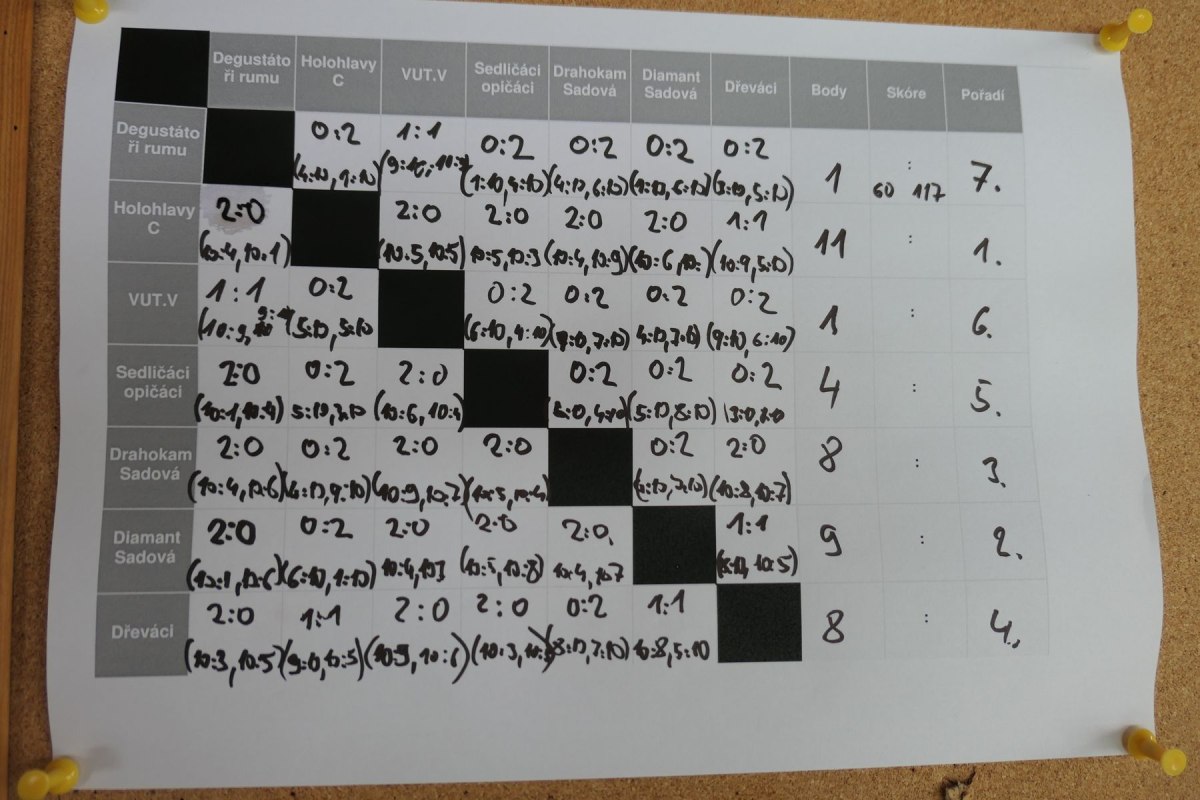 Degustáto Holohlavy VUT.V Sedličáci Drahokam Diamant Dřeváci Body Skóre Pořadí
ři rumu C opičáci Sadová Sadová
Degustáto 0:2 1:1 0:2 0:2 0:2 0:2 1 : 7.
ři rumu (4:10, 1:10) (1:10, 4:10) (4:10, 6:10) (1:10, 6:10) (3:10, 5:10) 60 117
Holohlavy 2:0 2:0 2:0 2:0 2:0 1:1 11 : 1.
C (10:4, 10:1) (10:5, 10:5) 10:5, 10:3 (10:4, 10:9) (10:9, 5:10)
VUT.V 1:1 0:2 0:2 0:2 0:2 0:2 1 : 6.
(5:10, 5:10 (6:10, 4:10) (9:10, 6:10)
Sedličáci 2:0 0:2 2:0 0:2 0:2 0:2 4 : 5.
opičáci (10:1, 10:4) 5:10, 3:10 (10:6, 10:4) (5:10, 8:10)
Drahokam 2:0 0:2 2:0 2:0 0:2 2:0 8 : 3.
Sadová (10:4, 10:6) (4:10, 9:10) (10:9, 10:7) (10:5, 10:4) (10:8, 10:7)
Diamant 2:0 0:2 2:0 2:0 2:0 1:1 9 : 2.
Sadová (10:1, 10:6) (6:10, 1:10) (10:5, 10:8) 10:4, 10:7 (8:10, 10:5)
Dřeváci 2:0 1:1 2:0 2:0 0:2 1:1 8 : 4.
(10:3, 10:5) (10:9, 10:6) (8:10, 7:10) 10:8, 5:10